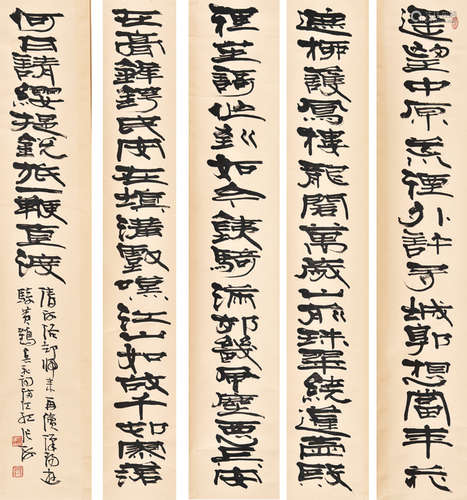 遥望中原荒煙外許多城郭想當年花
遮柳護鳳樓龍閣萬歲山前珠翠繞蓬壺殿
裡笙謌作到如今鐵騎滿郊畿風塵惡兵安
在膏鋒鍔民安在填溝壑嘆江山如故千邨寥落
何日請纓提銳旅一鞭直渡
清河洛却歸來再續漢陽遊
騎黃鶴 詞滿江紅